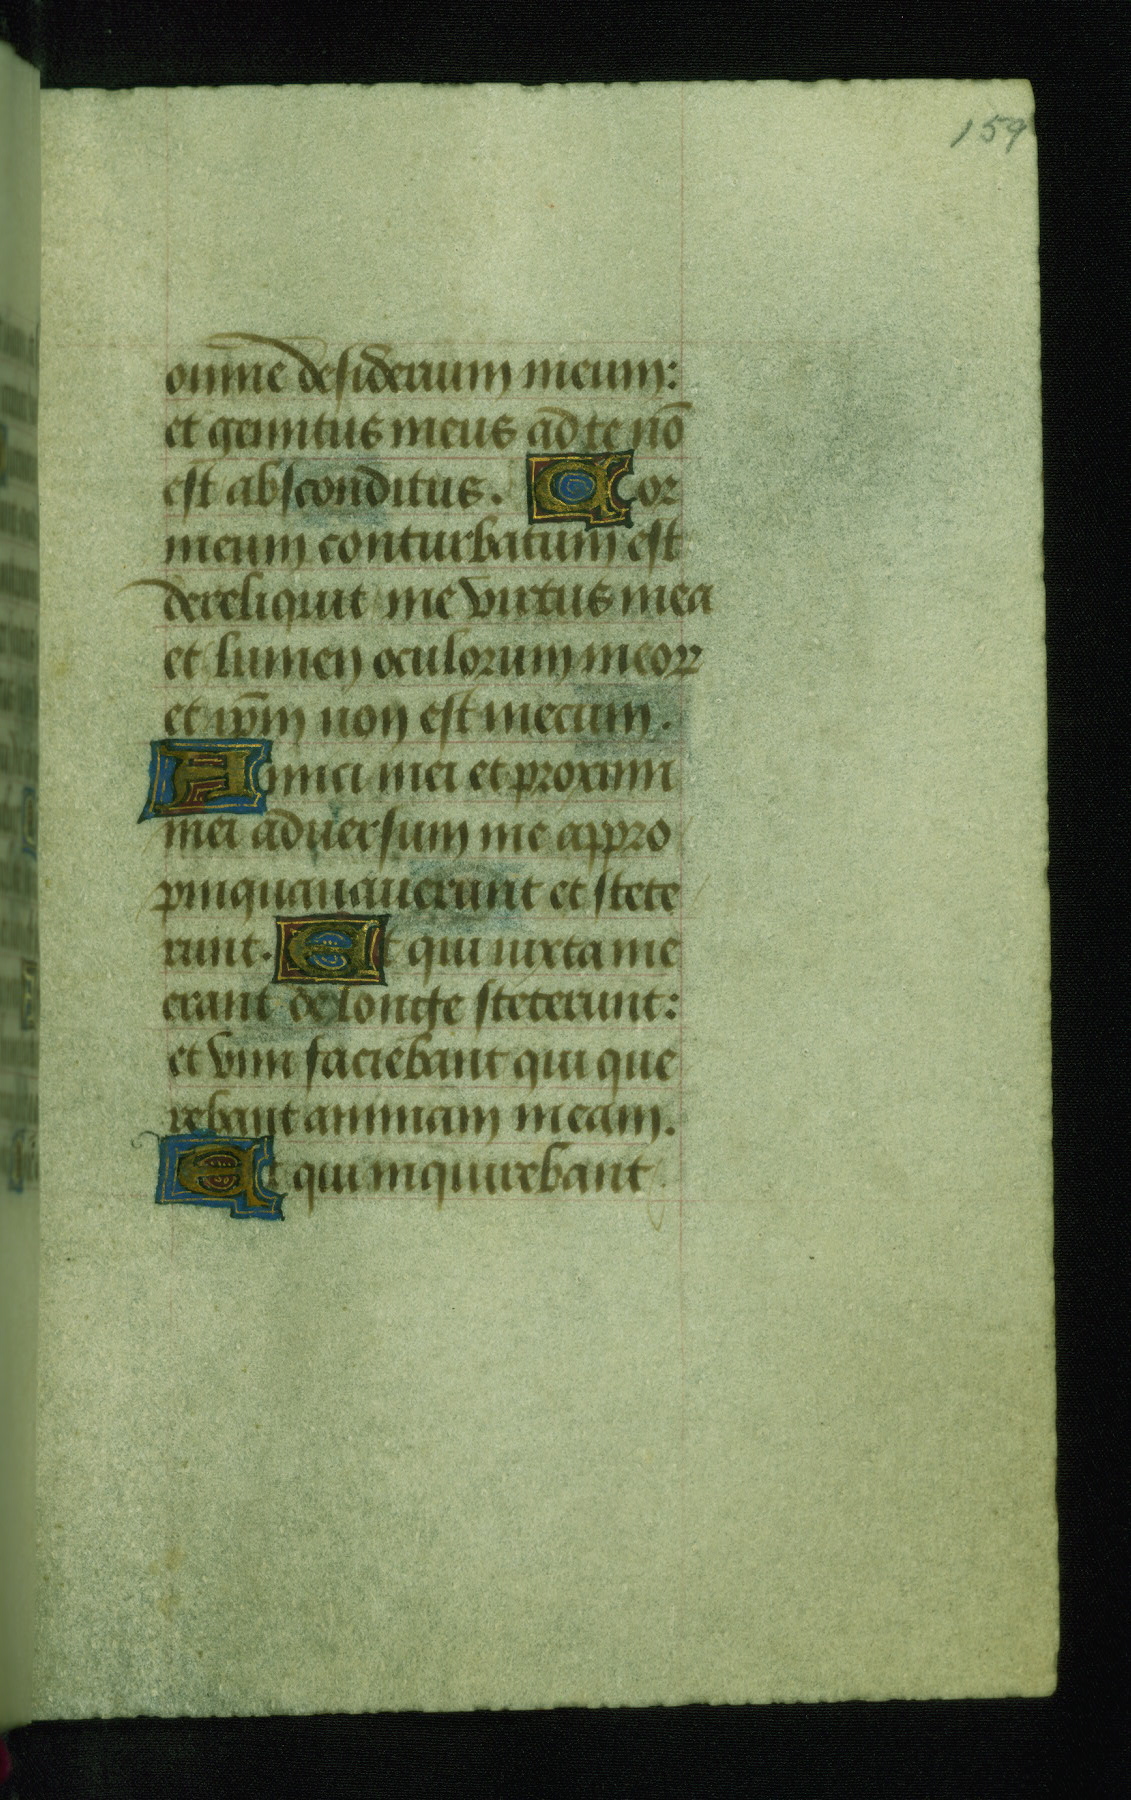 159
omne desiderium meum:
et gemitus meus ad te nō
est absconditus. Cor
meum conturbatum est
dereliquit me virtus mea
et lumen oculorum meoꝝ
et ip̄m non est mecum.
Amici mei et proximi
mei aduersum me appro
pinquauauerunt et stete
runt. Et qui iuxta me
erant de longe steterunt:
et vim faciebant qui que
rebant animam meam.
Et qui inquirebant